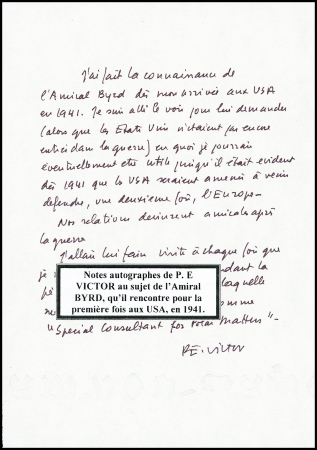 J'ai fait la connaissance de
l'Amiral Byrd dès mon arrivée aux USA
en 1941. Je suis allé le voir pour lui demander
(alors que les Etats Unis n'étaient pas encore
entrés dans la guerre) en quoi je pourrais
éventuellement être utile puisqu'il était évident
dès 1941 que les USA seraient amenés à venir
défendre, une deuxième fois, l'Europe-
Nos relations devinrent amicales après
la guerre
J'allais lui faire visite à chaque fois que
je
Notes autographes de P. E
VICTOR au sujet de l'Amiral
BYRD, qu'il rencontre pour la
première fois aux USA, en 1941.
dant la
laquelle
omme
"Special Consultant for Polar Matters"-
P.E. Victor